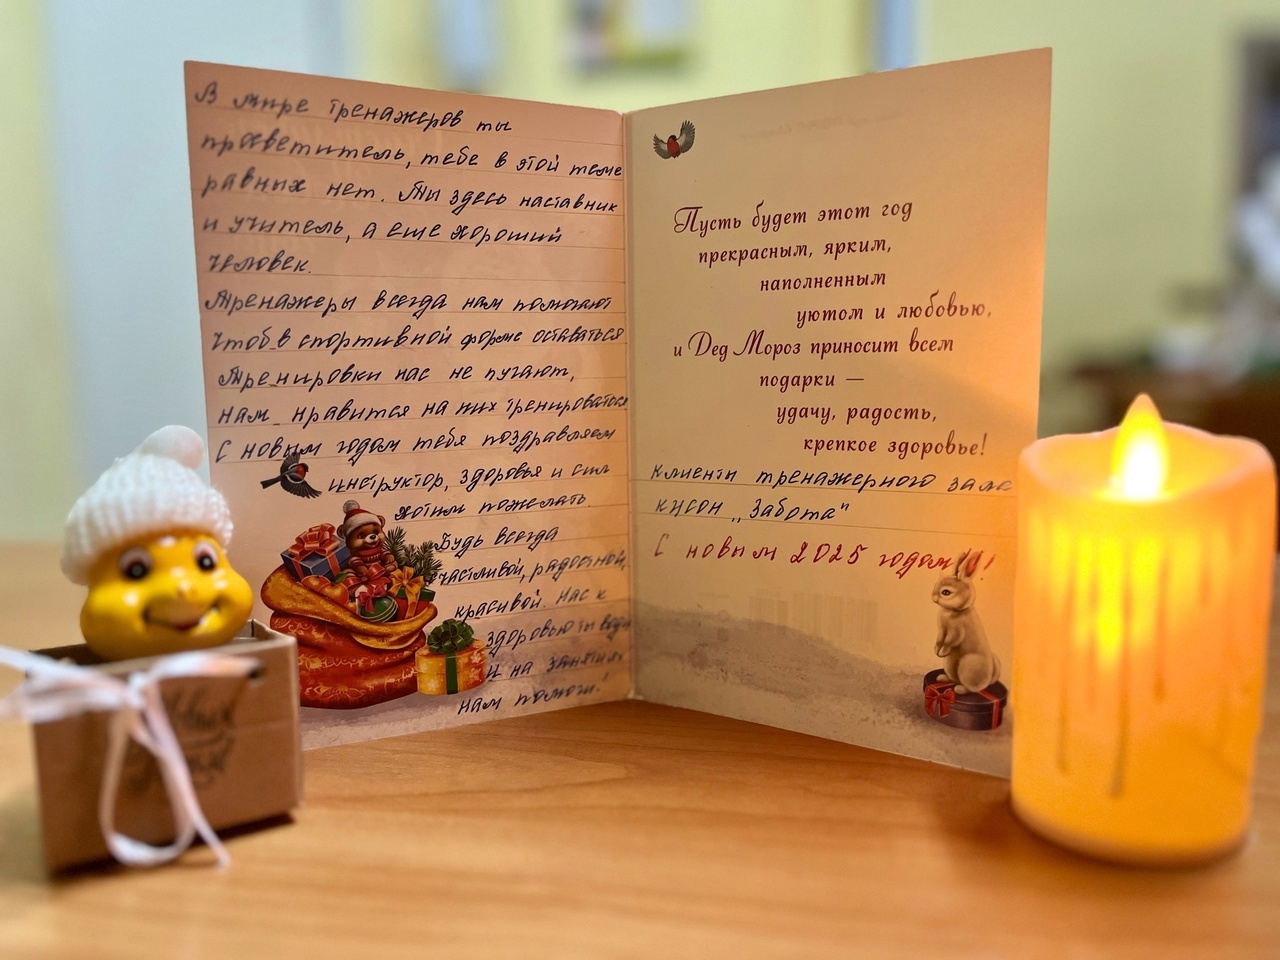 В мире тренажеров ты
просветитель, тебе в этой теме
равных нет. Ты здесь наставник
и учитель, а еще хороший
человек.
Тренажеры всегда нам помогают
чтоб в спортивной форме оставаться
Тренировки нас не пугают,
нам нравится на них тренироваться
С новым годом тебя поздравляем
инструктор, здоровья и сил
хотим пожелать.
Будь всегда
счастливой, радостной,
красивой. Нас к
здоровью ты веди
и на занятиях
нам помоги!
Пусть будет этот год
прекрасным, ярким,
наполненным
уютом и любовью,
и Дед Мороз приносит всем
подарки —
удачу, радость,
крепкое здоровье!
клиенты тренажерного зала
кцсон „Забота"
С новым 2025 годом!!!